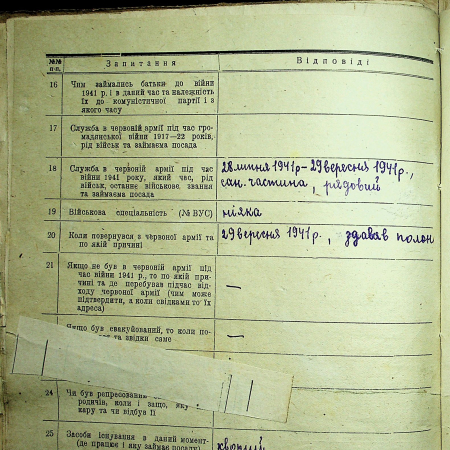 №№ п.п.
Запитання
Відповіді
16 Чим займались батьки до війни
1941 р. і в даний час та належність
їх до комуністичної партії і з
якого часу
17 Служба в червоній армії під час гро-
мадянської війни 1917—22 років,
рід військ та займаєма посада
18 Служба в червоній армії під час
війни 1941 року, який чес, рід
військ, останнє військове, звання
та займаєма посада
28 липня 1941 р – 29 вересня 1941 р.,
сан. частина, рядовий
19 Військова спеціальність (№ ВУС)
ніяка
20 Коли повернувся в червоної армії та
по якій причині
29 вересня 1941 р., здавав полон
21 Якщо не був в червоній армії під
час війни 1941 р., то по якій при-
чині та де перебував підчас від-
ходу червоної армії (чим може
підтвердити, а коли свідками то їх
адреса)
—
Якщо був евакуйований, то коли по-
та звідки саме
—
24 Чи був репресован
родичів, коли і защо, яку
кару та чи відбув її
25 Засоби існування в даний момент
(де працює і яку займає посаду)
хворий